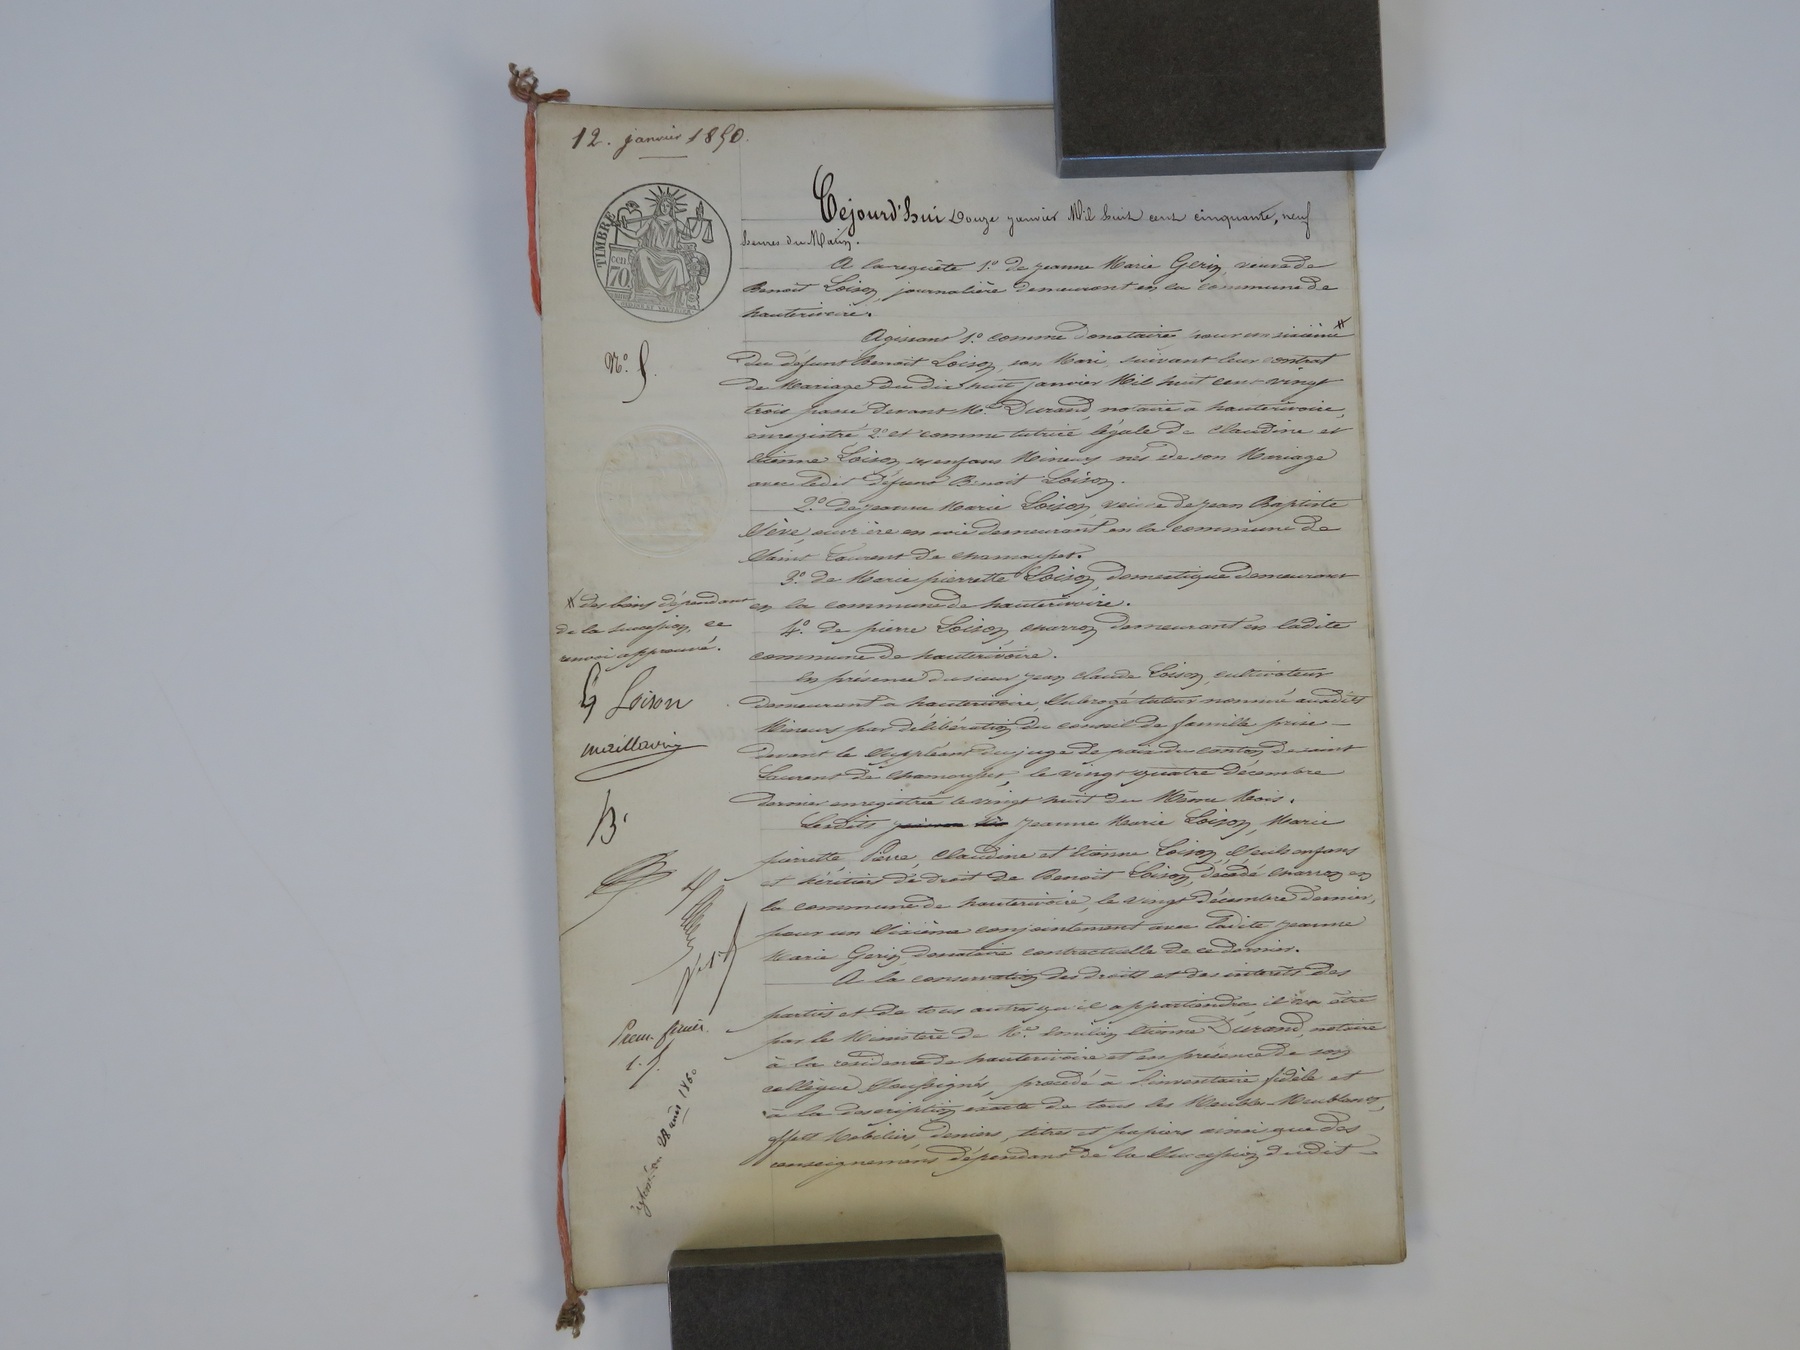 12. janvier 1850.
TIMBRE
cen.
70
Cejourd'hui Douze janvier Mil huit cent cinquante, neuf
heures du Matin.
A la requête 1.º de jeanne Marie Gerin, veuve de
Benoît Loison, journalière demeurant en la commune de
hauterivoire.
Agissant 1.º comme donataire pour un sixième #
du défunt Benoît Loison, son Mari, suivant leur contrat
de Mariage du dix huit janvier Mil huit cent vingt
trois passé devant M.e Durand, notaire à hauterivoire,
enregistré 2.º et comme tutrice légale de Claudine et
Etienne Loison ses enfans Mineurs nés de son Mariage
avec ledit défunt Benoît Loison.
2.º de jeanne Marie Loison, veuve de jean Baptiste
Sève, ouvrière en soie demeurant en la commune de
Saint Laurent de chamousset.
3.º de Marie pierrette Loison, domestique demeurant
en la commune de hauterivoire.
4.º de pierre Loison, charron demeurant en ladite
commune de hauterivoire.
En présence du sieur jean claude Loison, cultivateur
demeurant à hauterivoire, Subrogé tuteur nommé auxdits
Mineurs par délibération du conseil de famille prise
devant le Suppléant du juge de paix du canton de saint
Laurent de chamousset, le vingt quatre décembre
dernier enregistrée le vingt huit du Même Mois.
Lesdits jeanne Marie Loison, Marie
pierrette, Pierre, Claudine et Etienne Loison, Seuls enfans
et héritiers de droit de Benoît Loison, décédé charron en
la commune de hauterivoire, le vingt décembre dernier,
pour un Sixième conjointement avec ladite jeanne
Marie Gerin, donataire contractuelle de ce dernier.
A la conservation des droits et des intérêts des
parties et de tous autres qu'il appartiendra il va être
par le Ministère de M.e Etienne Durand, notaire
à la résidence de hauterivoire et en présence de son
collègue Soussignés, procédé à l'inventaire fidèle et
à la description exacte de tous les Meubles Meublans,
effets Mobiliers, deniers, titres et papiers ainsi que des
renseignemens dépendant de la Succession dudit
N.º 5.
# des biens dépendant
de la succession, ce
renvoi approuvé.
Loison
B.
1.5
28 août 1850